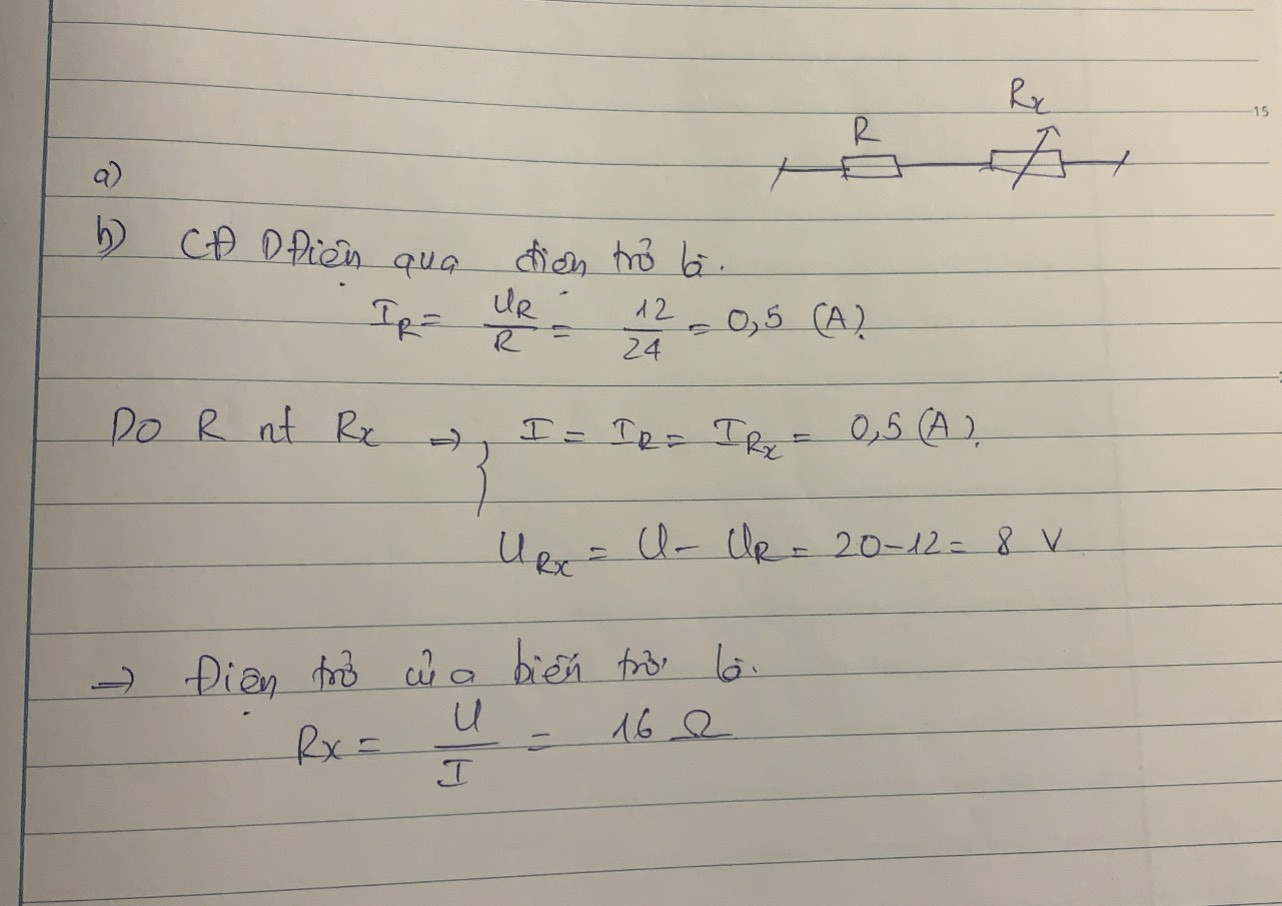 Rx
15
R
a)
b) CĐ D Điện qua điện trở là.
I_R = U_R/R = 12/24 = 0,5 (A).
Do R nt Rx ⇒ { I = I_R = I_Rx = 0,5 (A).
U_Rx = U - U_R = 20-12 = 8 V
→ Điện trở của biến trở là.
Rx = U/I = 16 Ω